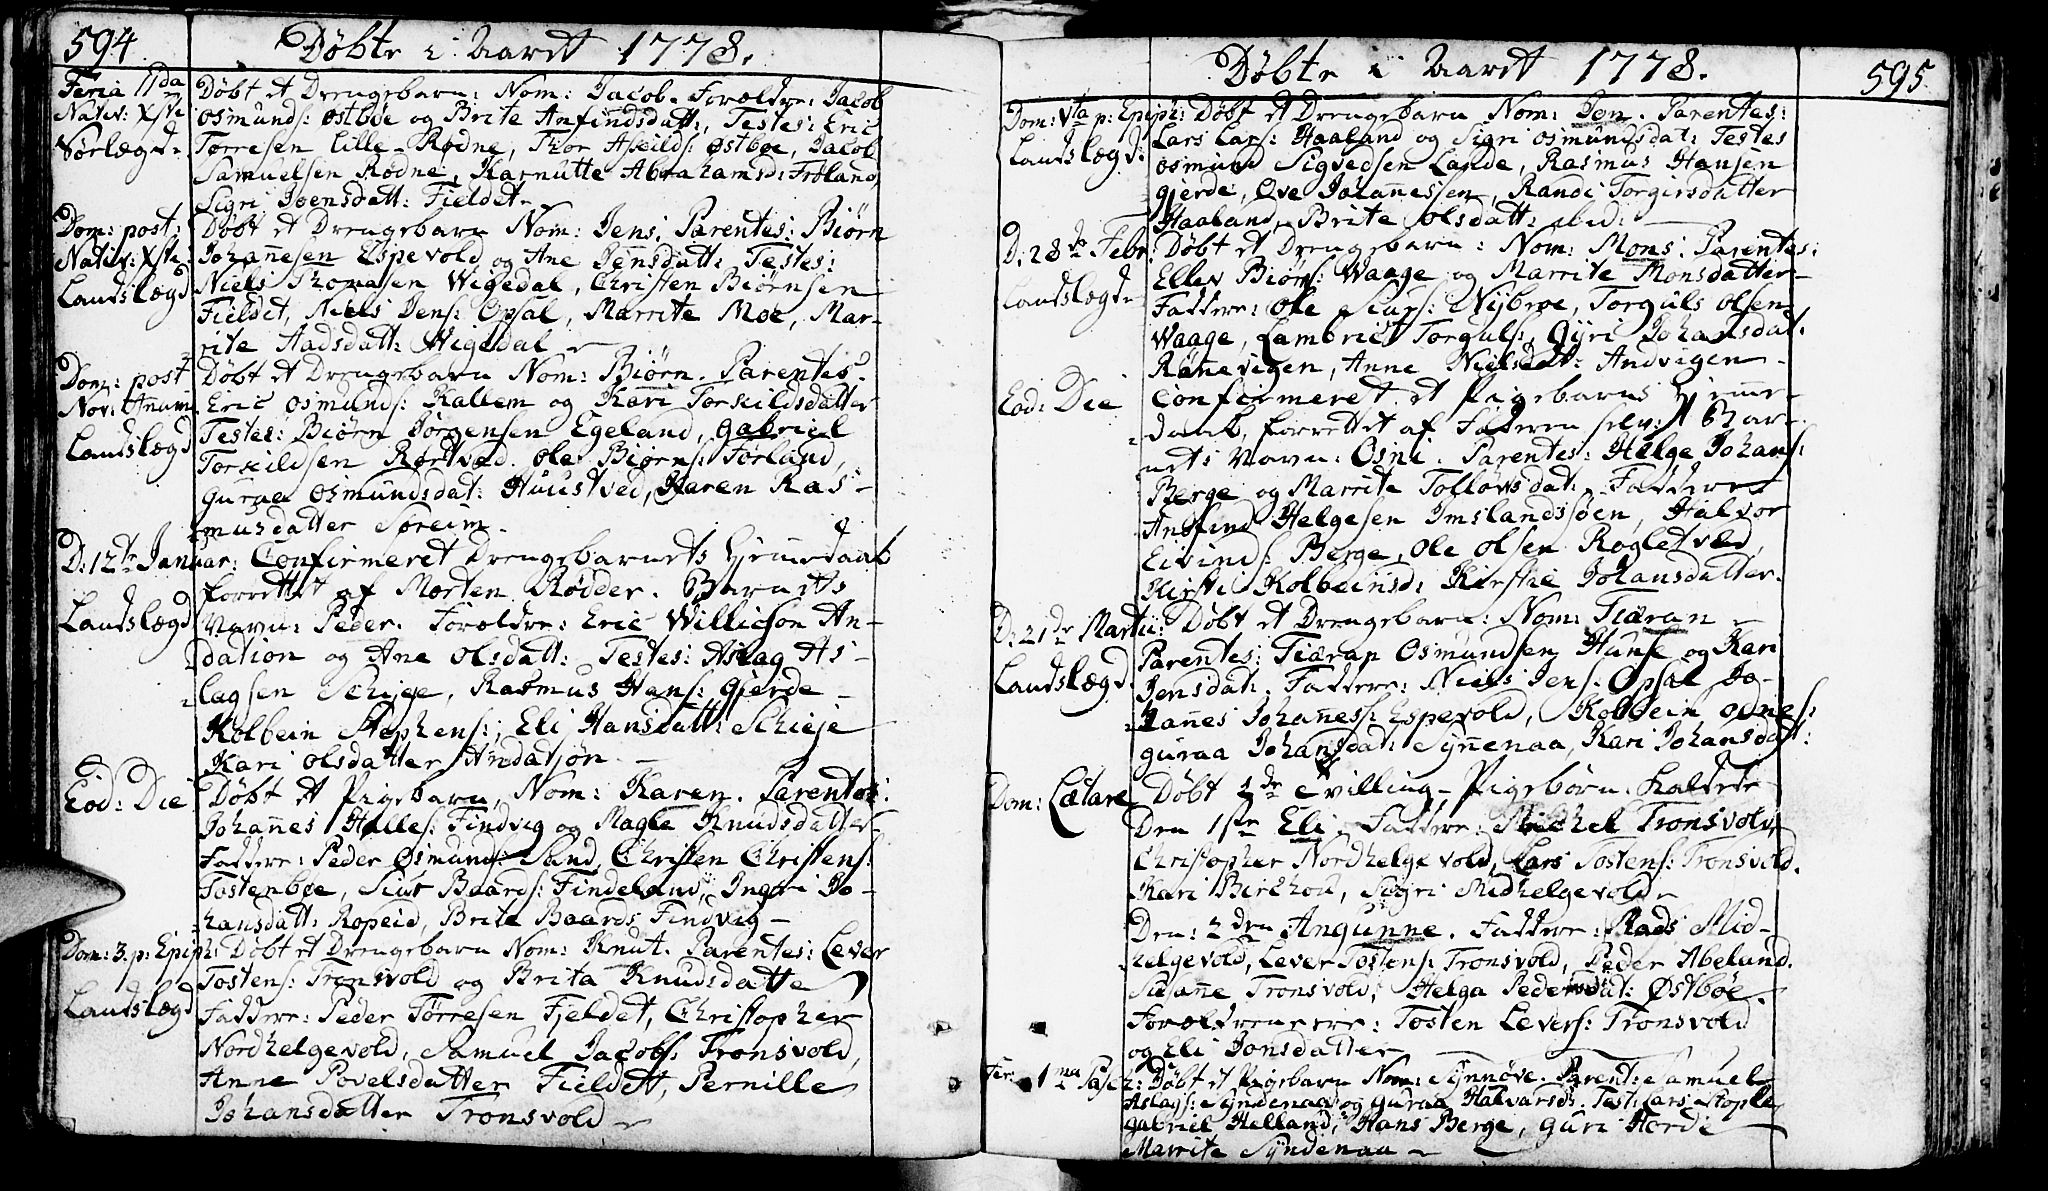 594
Døbte i Aaret 1778.
Feria IIda
Nativ: Xsti
Sørlægd:
Døbt et Drengebarn: Nom: Jacob. Forældre: Jacob
Osmunds: Østbøe og Brite Anfindsdatt:, Testes: Eric
Tørresen Lille-Rødne, Thor Aschilds: Østbøe, Jacob
Samuelsen Rødne, Karnutte Abrahamsd: Frøland,
Sigri Joensdatt: Fieldet.
Dom: post:
Nativ: Xsti:
Landslægd
Døbt et Drengebarn Nom: Jens, Parentes: Biørn
Johañesen Espevold og Ane Jensdatt: Testes:
Niels Thomasen Wigedal, Christen Biørnsen
Fieldet, Niels Jens: Opsal, Marrite Moe, Mar-
rite Aadsdatt: Wigedal
Dom: post
Nov: Añum
Landslægd
Døbt et Drengebarn Nom: Biørn. Parentes:
Eric Osmunds: Kallem og Kari Torkildsdatter
Testes: Biørn Jørgensen Egeland, Gabriel
Torkildsen Rørtved. Ole Biørns: Førland,
Guraa Osmundsdat: Huustved, Karen Ras-
musdatter Søreim.
D: 12te Januar:
Landslægd
Confirmeret Drengebarnets Hiemedaab
forrettet af Morten Rødder. Barnets
Navn: Peder. Forældre: Eric Willicson An-
dation og Ane Olsdatt: Testes: Aslag As-
lagsen Schije, Rasmus Hans: Gjerde
Kolbein Stephens:, Eli Hansdatt: Schieje
Kari Olsdatter Andatjøn
Eod: Die
Døbt et Pigebarn, Nom: Karen. Parentes:
Johañes Halles: Findvig og Magle Knudsdatter
Faddere: Peder Osmunds: Sand, Christen Christens:
Tostenbøe, Siur Baards: Findeland, Ingri Jo-
hansdatt: Ropeid, Brite Baards Findvig
Dom: 3. p: Epiph:
Landslægd
Døbt et Drengebarn Nom: Knut. Parentes: Lever
Tostens: Tronsvold og Brita Knudsdatte
Faddere: Peder Tørresen Fjeldet, Christopher
Nordhelgevold, Samuel Jacobs: Tronsvold,
Anne Povelsdatter Fieldet, Pernille
Johansdatter Tronsvold
Døbte i Aaret 1778.
595.
Dom: Vta p: Epiph:
Landslægd:
Døbt et Drengebarn Nom: Jon. Parentes:
Lars Lars: Haaland og Sigri Osmundsdat: Testes
Osmund Sigvedsen Lande, Rasmus Hansen
Gjerde, Ove Johañessen, Randi Torgersdatter
Haaland, Brite Olsdatt: ibid:
D: 28de Febr:
Landslægd
Døbt et Drengebarn: Nom: Mons. Parentes:
Ellev Biørs: Waage og Marrite Monsdatter
Faddere: Ole Siurs: Nybroe, Torguls Olsen
Waage, Lambrict Torguls:, Gyri Johansdat:
Rønevigen, Anne Nielsdt: Andvigen
Eod: Die
Confirmeret et Pigebarns Hieme-
daab, forrettet af Faderen selv: Bar-
nets Navn: Osni. Parentes: Helge Johans:
Berge og Marrite Tollowsdat: Faddere
Anfind Helgesen Imslandssøen, Halvor
Eivinds: Berge, Ole Olsen Rogletved,
Kirsti Kolbeinsd: Kirstie Johansdatter.
D: 21de Martii:
Landslægd
Døbt et Drengebarn: Nom: Tiæran
Parentes: Tiæran Osmundsen Hunse og Kari
Jensdat: Faddere: Niels Jens: Opsal Jo-
hañes Johañess: Espevold, Kolbein Odnes:
Guraa Johansdat: Syñenaa, Kari Johansdatt:
Dom: Lætare
Døbt 2de Tvilling-Pigebørn. Kaldede
Den 1ste Eli. Faddere: Michel Tronsvold,
Christopher Nordhelgevold, Lars Tostens: Tronsvold.
Kari Birchou, Sigri Midhelgevold
Den: 2den Angunne. Faddere: Mads Mid-
helgevold, Lever Tostens: Tronsvold, Peder Abeland.
Susañe Tronsvold, Helga Pedersdat: Østbøe.
Forældrene ere: Tosten Levers: Tronsvold
og Eli Jonsdatter
Fer: 1ma Pasch:
Døbt et Pigebarn Nom: Synnøve. Parent: Samuel
Aslags: Syndenaa og Guraa Halvarsd. Test: Lars Stople
Gabriel Helland, Hans Berge, Guri Horde
Marrite Syndenaa